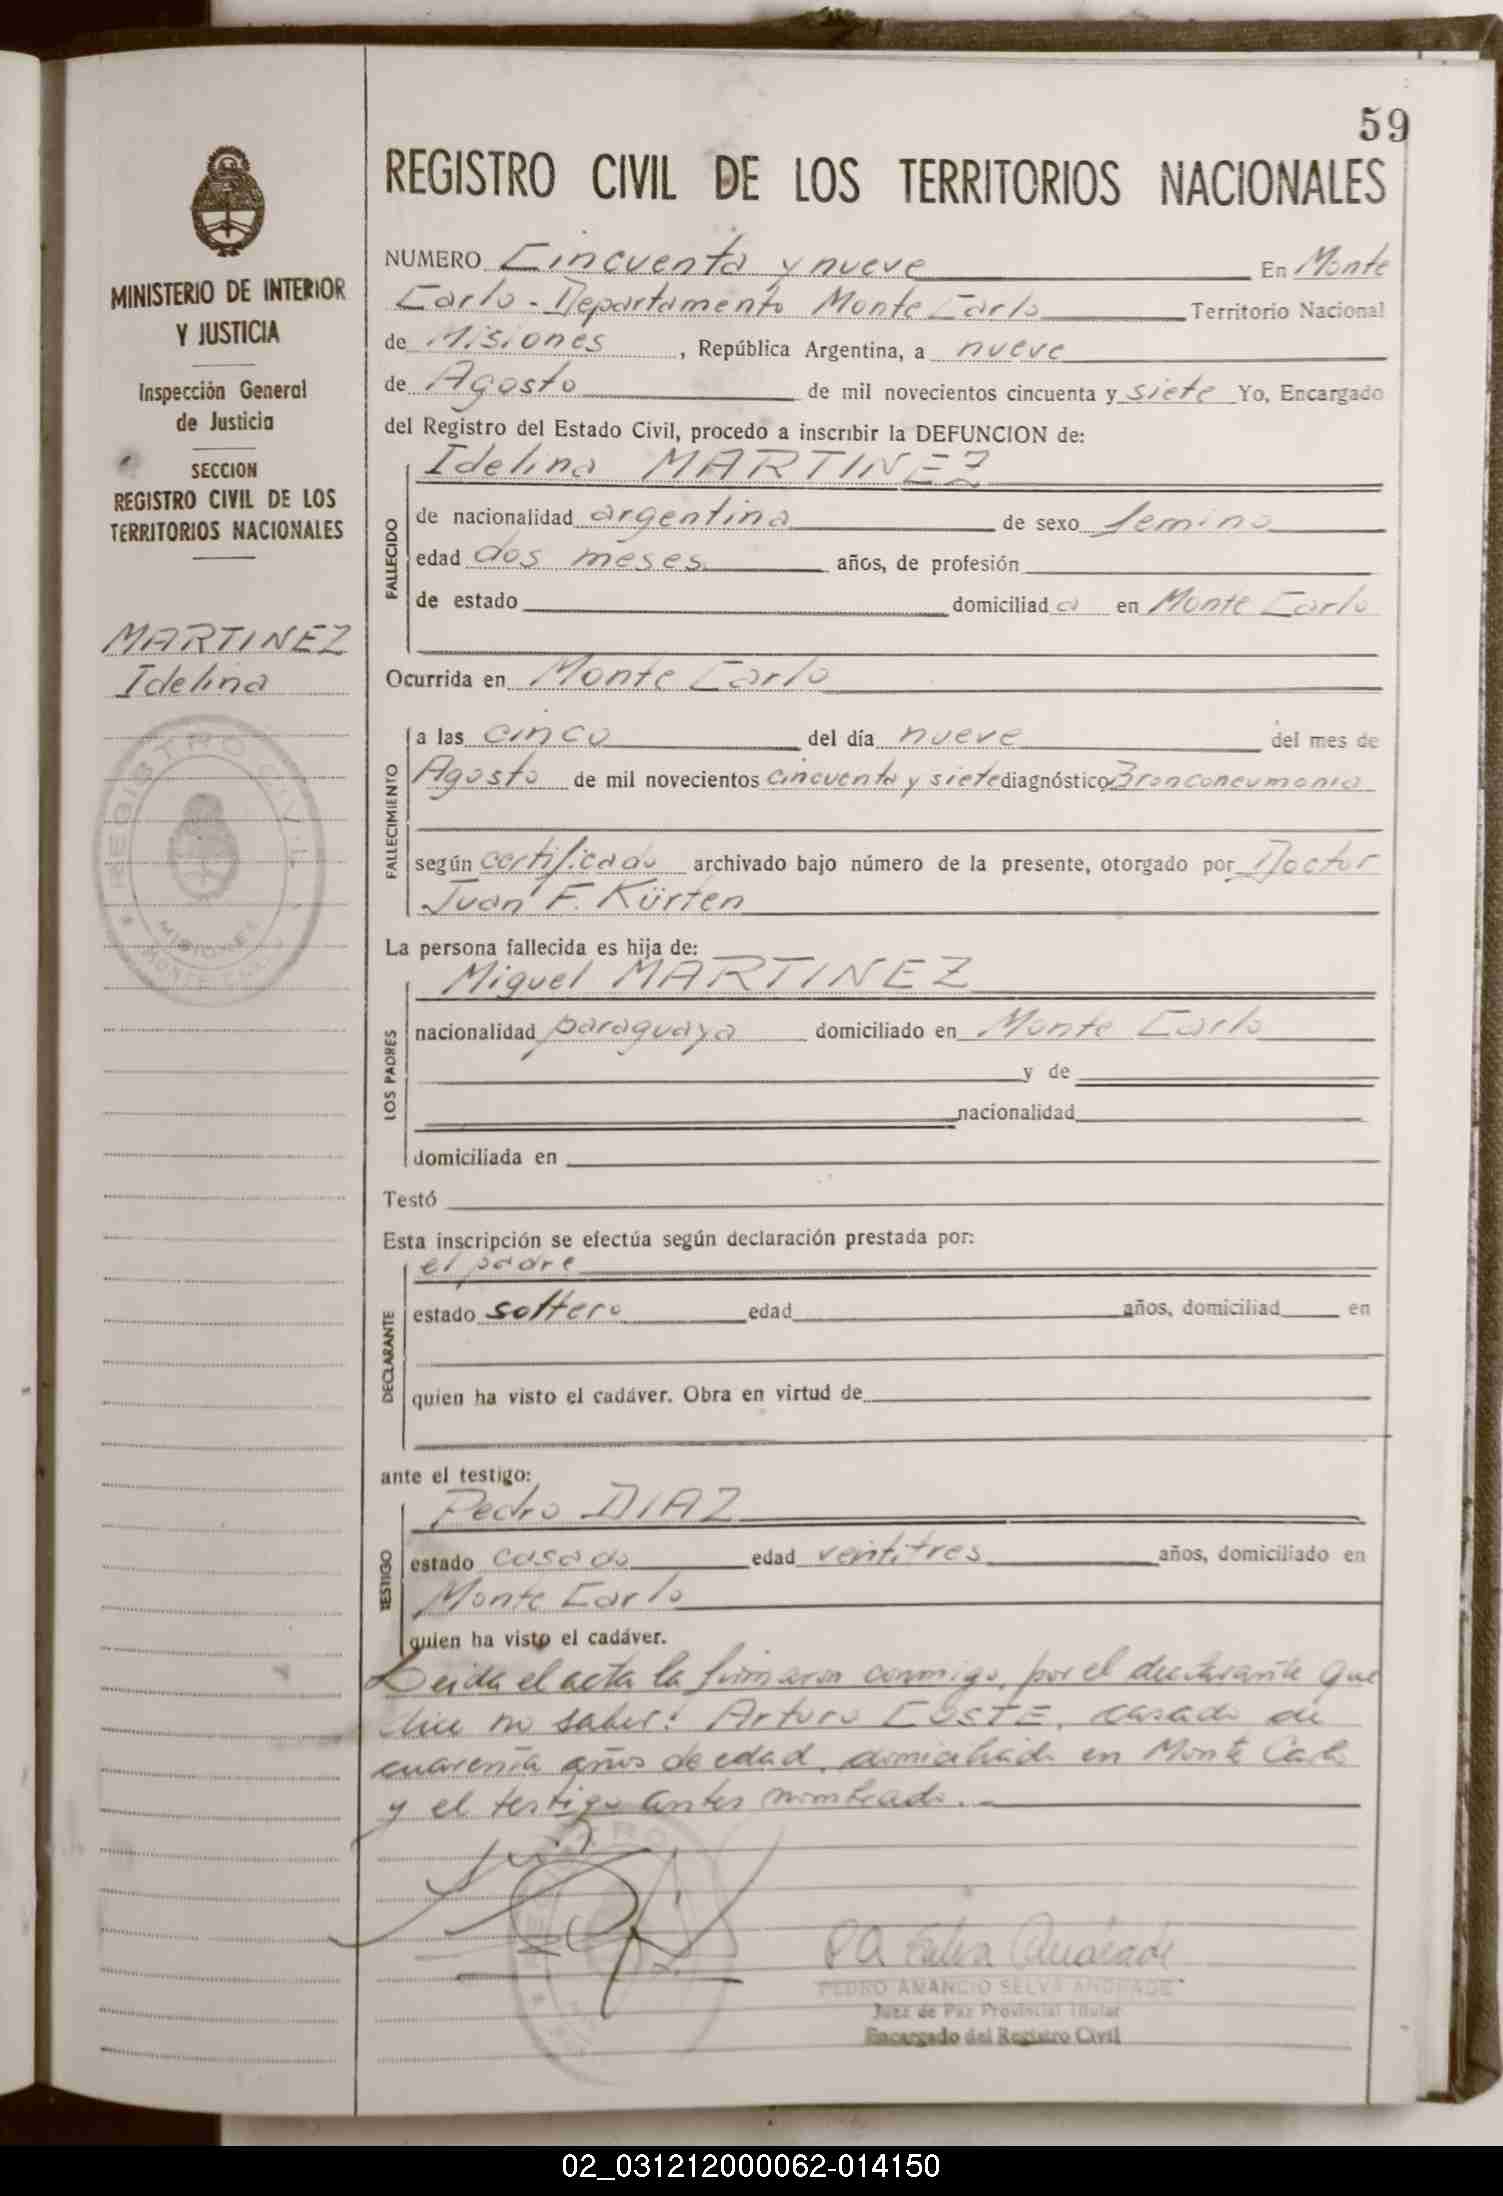 59
REGISTRO CIVIL DE LOS TERRITORIOS NACIONALES
MINISTERIO DE INTERIOR
Y JUSTICIA
Inspección General
de Justicia
SECCION
REGISTRO CIVIL DE LOS
TERRITORIOS NACIONALES
MARTINEZ
Idelina
REGISTRO CIVIL
MISIONES
MONTE CARLO
NUMERO Cincuenta y nueve En Monte
Carlo - Departamento Monte Carlo Territorio Nacional
de Misiones, República Argentina, a nueve
de Agosto de mil novecientos cincuenta y siete Yo, Encargado
del Registro del Estado Civil, procedo a inscribir la DEFUNCION de:
FALLECIDO
Idelina MARTINEZ
de nacionalidad argentina de sexo femino
edad dos meses años, de profesión
de estado domiciliad a en Monte Carlo
Ocurrida en Monte Carlo
FALLECIMIENTO
a las cinco del día nueve del mes de
Agosto de mil novecientos cincuenta y siete diagnóstico Bronconeumonia
según certificado archivado bajo número de la presente, otorgado por Doctor
Juan F. Kürten
La persona fallecida es hija de:
LOS PADRES
Miguel MARTINEZ
nacionalidad paraguaya domiciliado en Monte Carlo
y de
nacionalidad
domiciliada en
Testó
Esta inscripción se efectúa según declaración prestada por:
DECLARANTE
el padre
estado soltero edad años, domiciliad en
quien ha visto el cadáver. Obra en virtud de
ante el testigo:
TESTIGO
Pedro DIAZ
estado casado edad veintitres años, domiciliado en
Monte Carlo
quien ha visto el cadáver.
Leida el acta la firmaron conmigo, por el declarante que
dice no saber: Arturo COSTE, casado de
cuarenta años de edad, domiciliado en Monte Carlo
y el testigo antes nombrado.-
PA Selva Andrade
PEDRO AMANCIO SELVA ANDRADE
Juez de Paz Provincial Titular
Encargado del Registro Civil
02_031212000062-014150